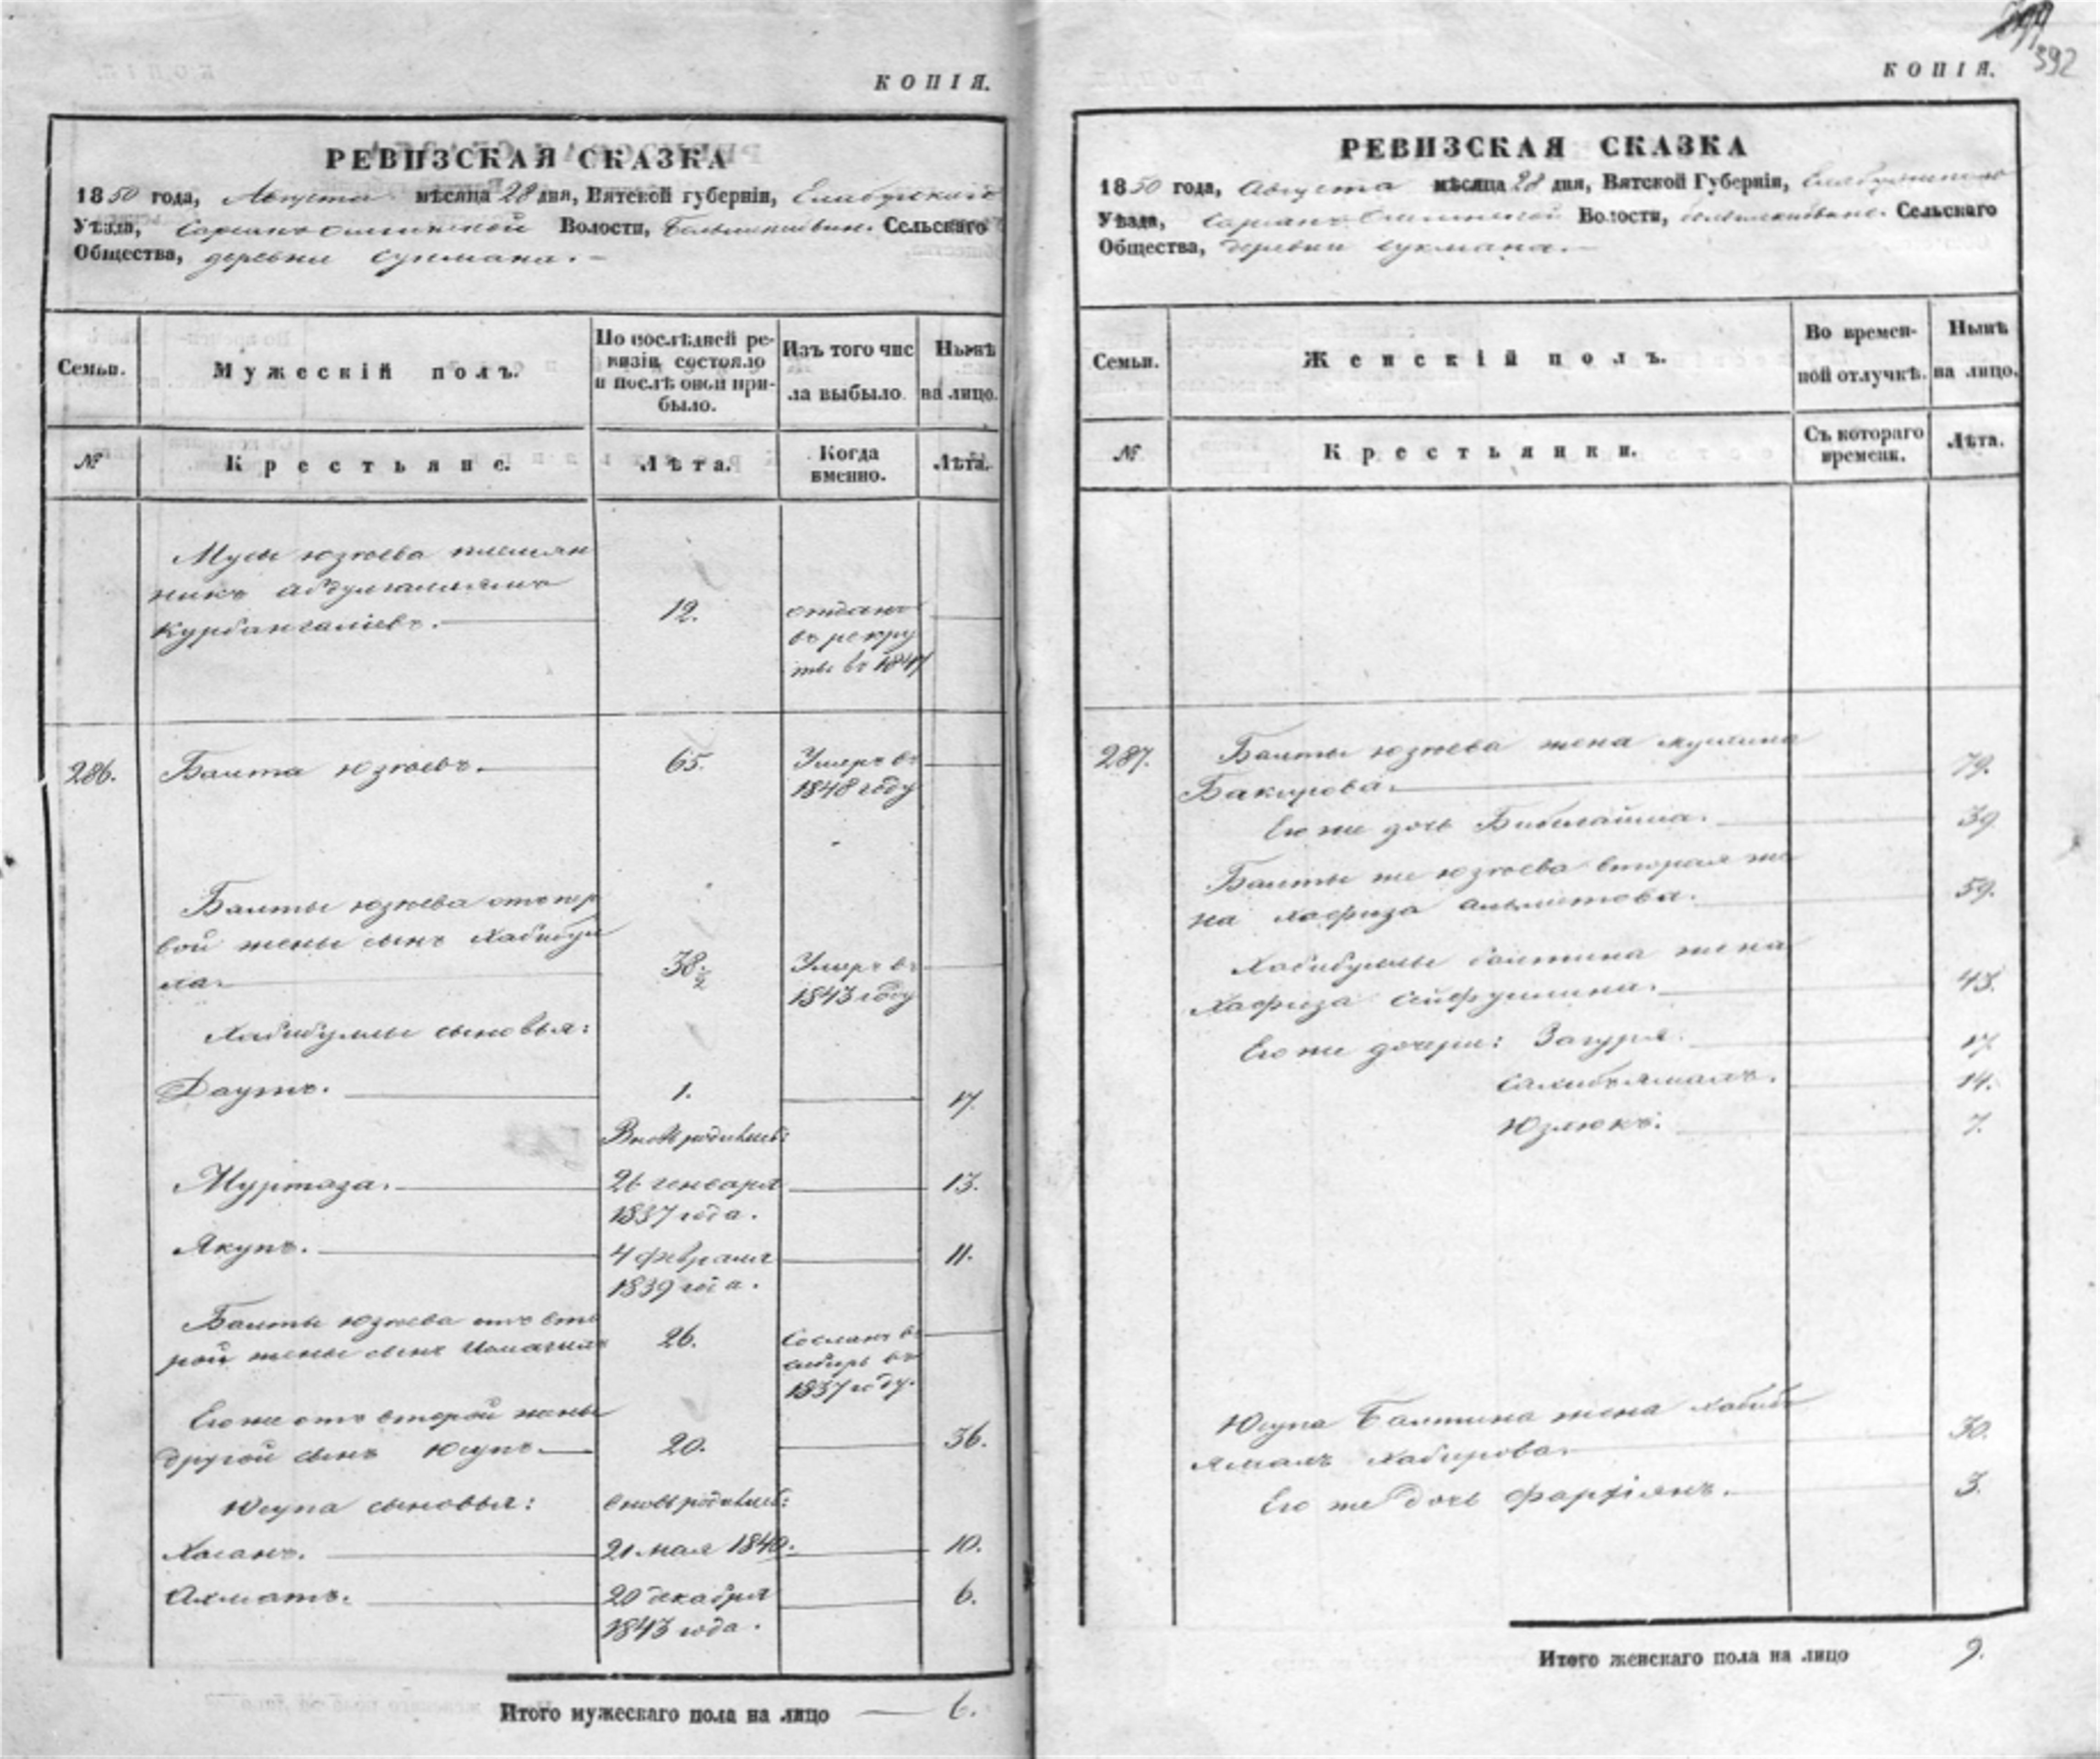 392
КОПІЯ.
РЕВИЗСКАЯ СКАЗКА
1850 года, Августа мѣсяца 28 дня, Вятской губерніи, Елабужскаго
Уѣзда, Волости, Сельскаго
Общества, деревни Сукмана.
Семьи.
Мужескій полъ.
По послѣдней ре-
визіи состояло
и послѣ оной при-
было.
Изъ того чис
ла выбыло.
Нынѣ
на лицо.
№
Крестьяне.
Лѣта.
Когда
именно.
Лѣта.
Мусы Юзѣева племян
никъ
Курбангаліевъ.
12.
отданъ
въ рекру
ты въ
286.
Баита Юзѣевъ.
65.
Умеръ въ
1848 году
Баиты Юзѣева отъ пер
вой жены сынъ Хабибул
ла.
38 ½
Умеръ въ
1843 году
Хабибуллы сыновья:
Даутъ.
1.
17.
Вновь родились:
Муртаза.
26 генваря
1837 года.
13.
Якупъ.
4 февраля
1839 года.
11.
Баиты Юзѣева отъ вто
рой жены сынъ Исмагилъ
26.
Сосланъ въ
сибирь въ
1837 году.
Его же отъ второй жены
другой сынъ Юсупъ.
20.
36.
Юсупа сыновья:
вновь родились:
Хасанъ.
21 мая 1840.
10.
Ахматъ.
20 декабря
1843 года.
6.
Итого мужескаго пола на лицо
6.
КОПІЯ.
РЕВИЗСКАЯ СКАЗКА
1850 года, Августа мѣсяца 28 дня, Вятской Губерніи, Елабужскаго
Уѣзда, Волости, Сельскаго
Общества, деревни Сукмана.
Семьи.
Женскій полъ.
Во времен-
ной отлучкѣ.
Нынѣ
на лицо.
№
Крестьянки.
Съ котораго
времени.
Лѣта.
287.
Баиты Юзѣева жена
Бакирова.
79.
Его же дочь
39
Баиты же Юзѣева вторая же
на Хафиза
59.
Хабибуллы Баитина жена
Хафиза Сейфуллина.
43.
Его же дочери: Загуря.
17.
14.
Юзлюкъ.
7.
Юсупа Баитина жена Хабиб
ямалъ Хабирова.
30.
Его же дочь
3.
Итого женскаго пола на лицо
9.